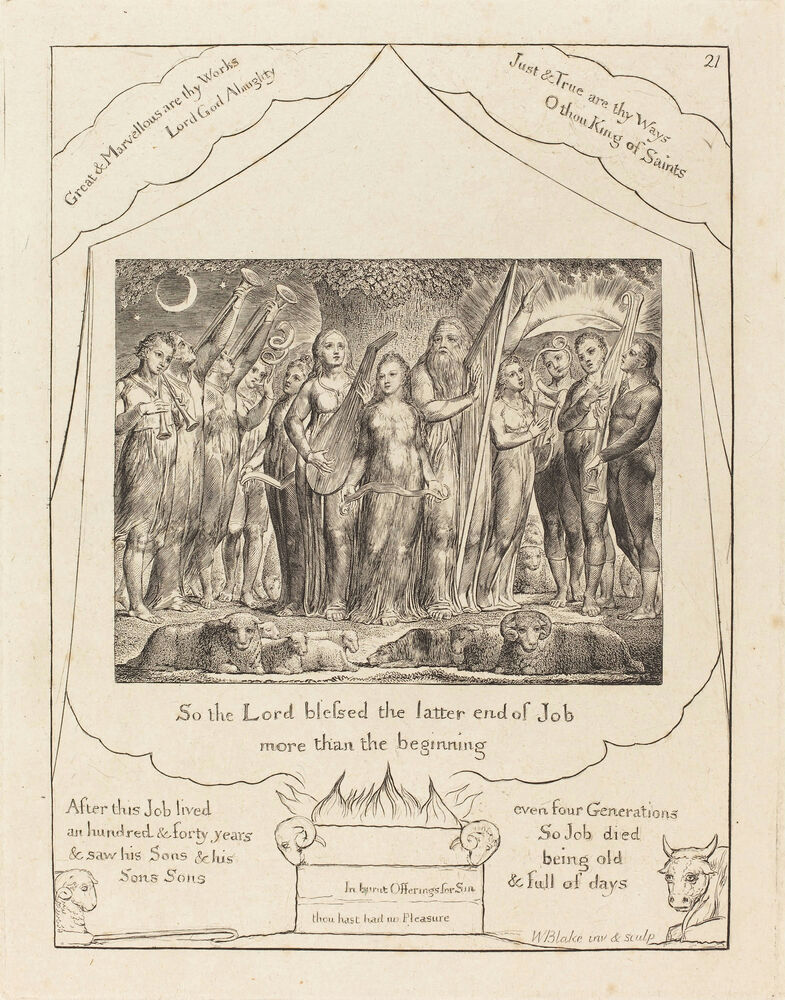 21
Great & Marvellous are thy Works
Lord God Almighty
Just & True are thy Ways
O thou King of Saints
So the Lord bleſsed the latter end of Job
more than the beginning
After this Job lived
an hundred & forty years
& saw his Sons & his
Sons Sons
even four Generations
So Job died
being old
& full of days
In burnt Offerings for Sin
thou hast had no Pleasure
WBlake inv & sculp